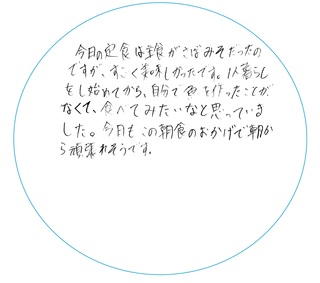 今日の定食は主食がさばみそだったの
ですが、すごく美味しかったです。1人暮らし
をし始めてから、自分で魚を作ったことが
なくて、食べてみたいなと思っていま
した。今日もこの朝食のおかげで朝か
ら頑張れそうです。